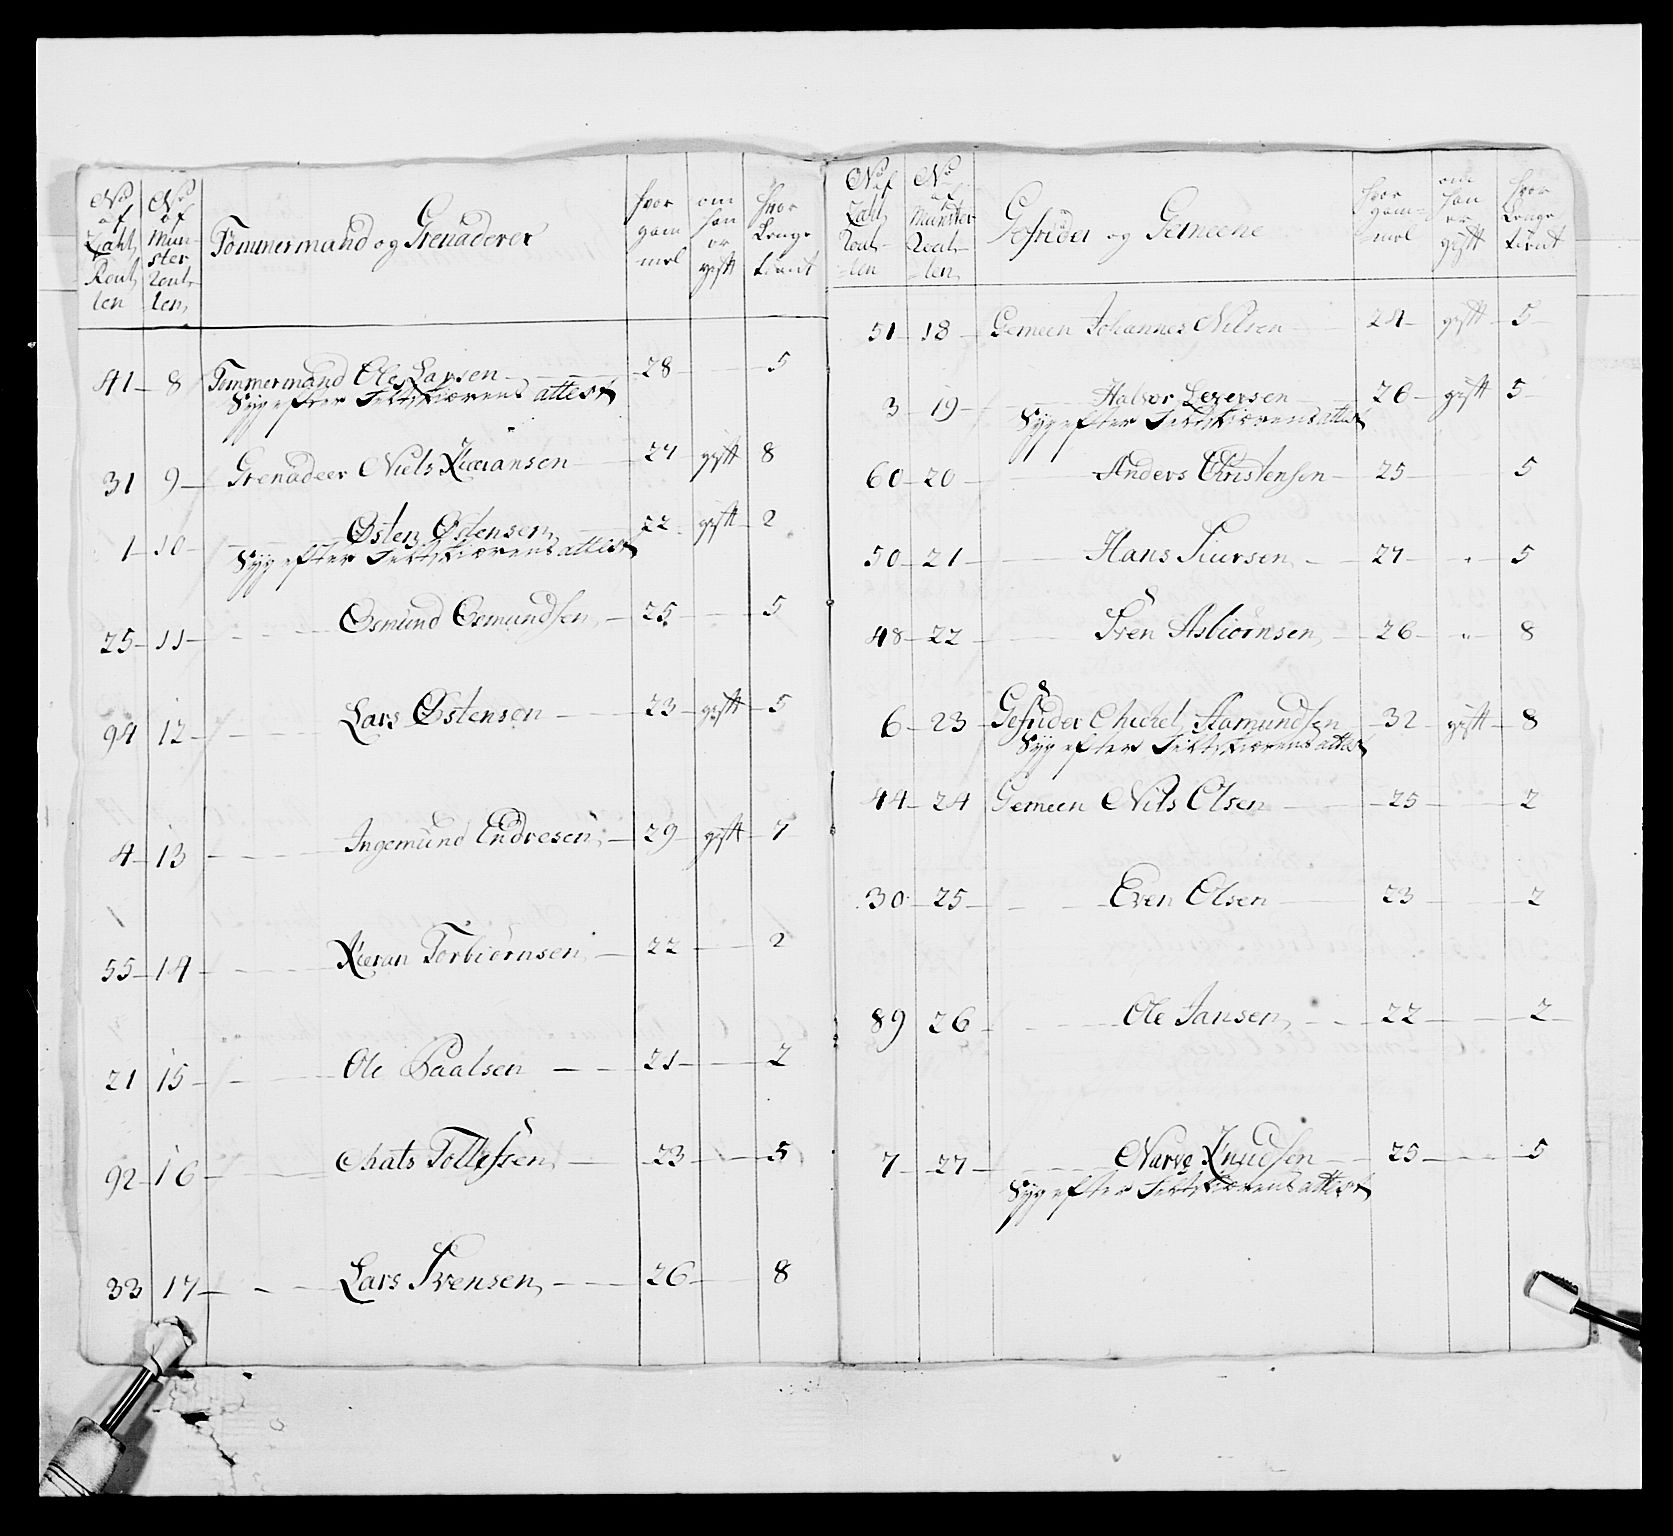 No af Zahl Roullen | No af Munster Roullen | Tömmermand og Grenaderer | hvor gammel | om han er gift | hvor Lenge tient
41 8 Tömmermand Ole Larsen 28 5
Syg efter Feltskiærens attest
31 9 Grenadeer Niels Kiæransen 27 gift 8
1 10 Østen Østensen 22 gift 2
Syg efter Feltskiærens attest
25 11 Osmund Osmundsen 25 5
94 12 Lars Østensen 23 gift 5
4 13 Ingemund Endresen 29 gift 7
55 14 Kiæran Torbiörnsen 22 2
21 15 Ole Paalsen 21 2
92 16 Mats Tollefsen 23 5
33 17 Lars Svensen 26 8
No af Zahl Roullen | No af Munster Roullen | Gefrider og Gemeene | hvor gammel | om han er gift | hvor Lenge tient
51 18 Gemeen Johannes Nilsen 24 gift 5
3 19 Halvor Leversen 26 gift 5
Syg efter Feltskiærens attest
60 20 Anders Christensen 25 5
50 21 Hans Siursen 27 " 5
48 22 Sven Asbiörnsen 26 " 8
6 23 Gefrider Michel Aamundsen 32 gift 8
Syg efter Feltskiærens attest
44 24 Gemeen Nils Olsen 25 2
30 25 Even Olsen 23 2
89 26 Ole Jansen 22 2
7 27 Narve Knudsen 25 5
Syg efter Feltskiærens attest